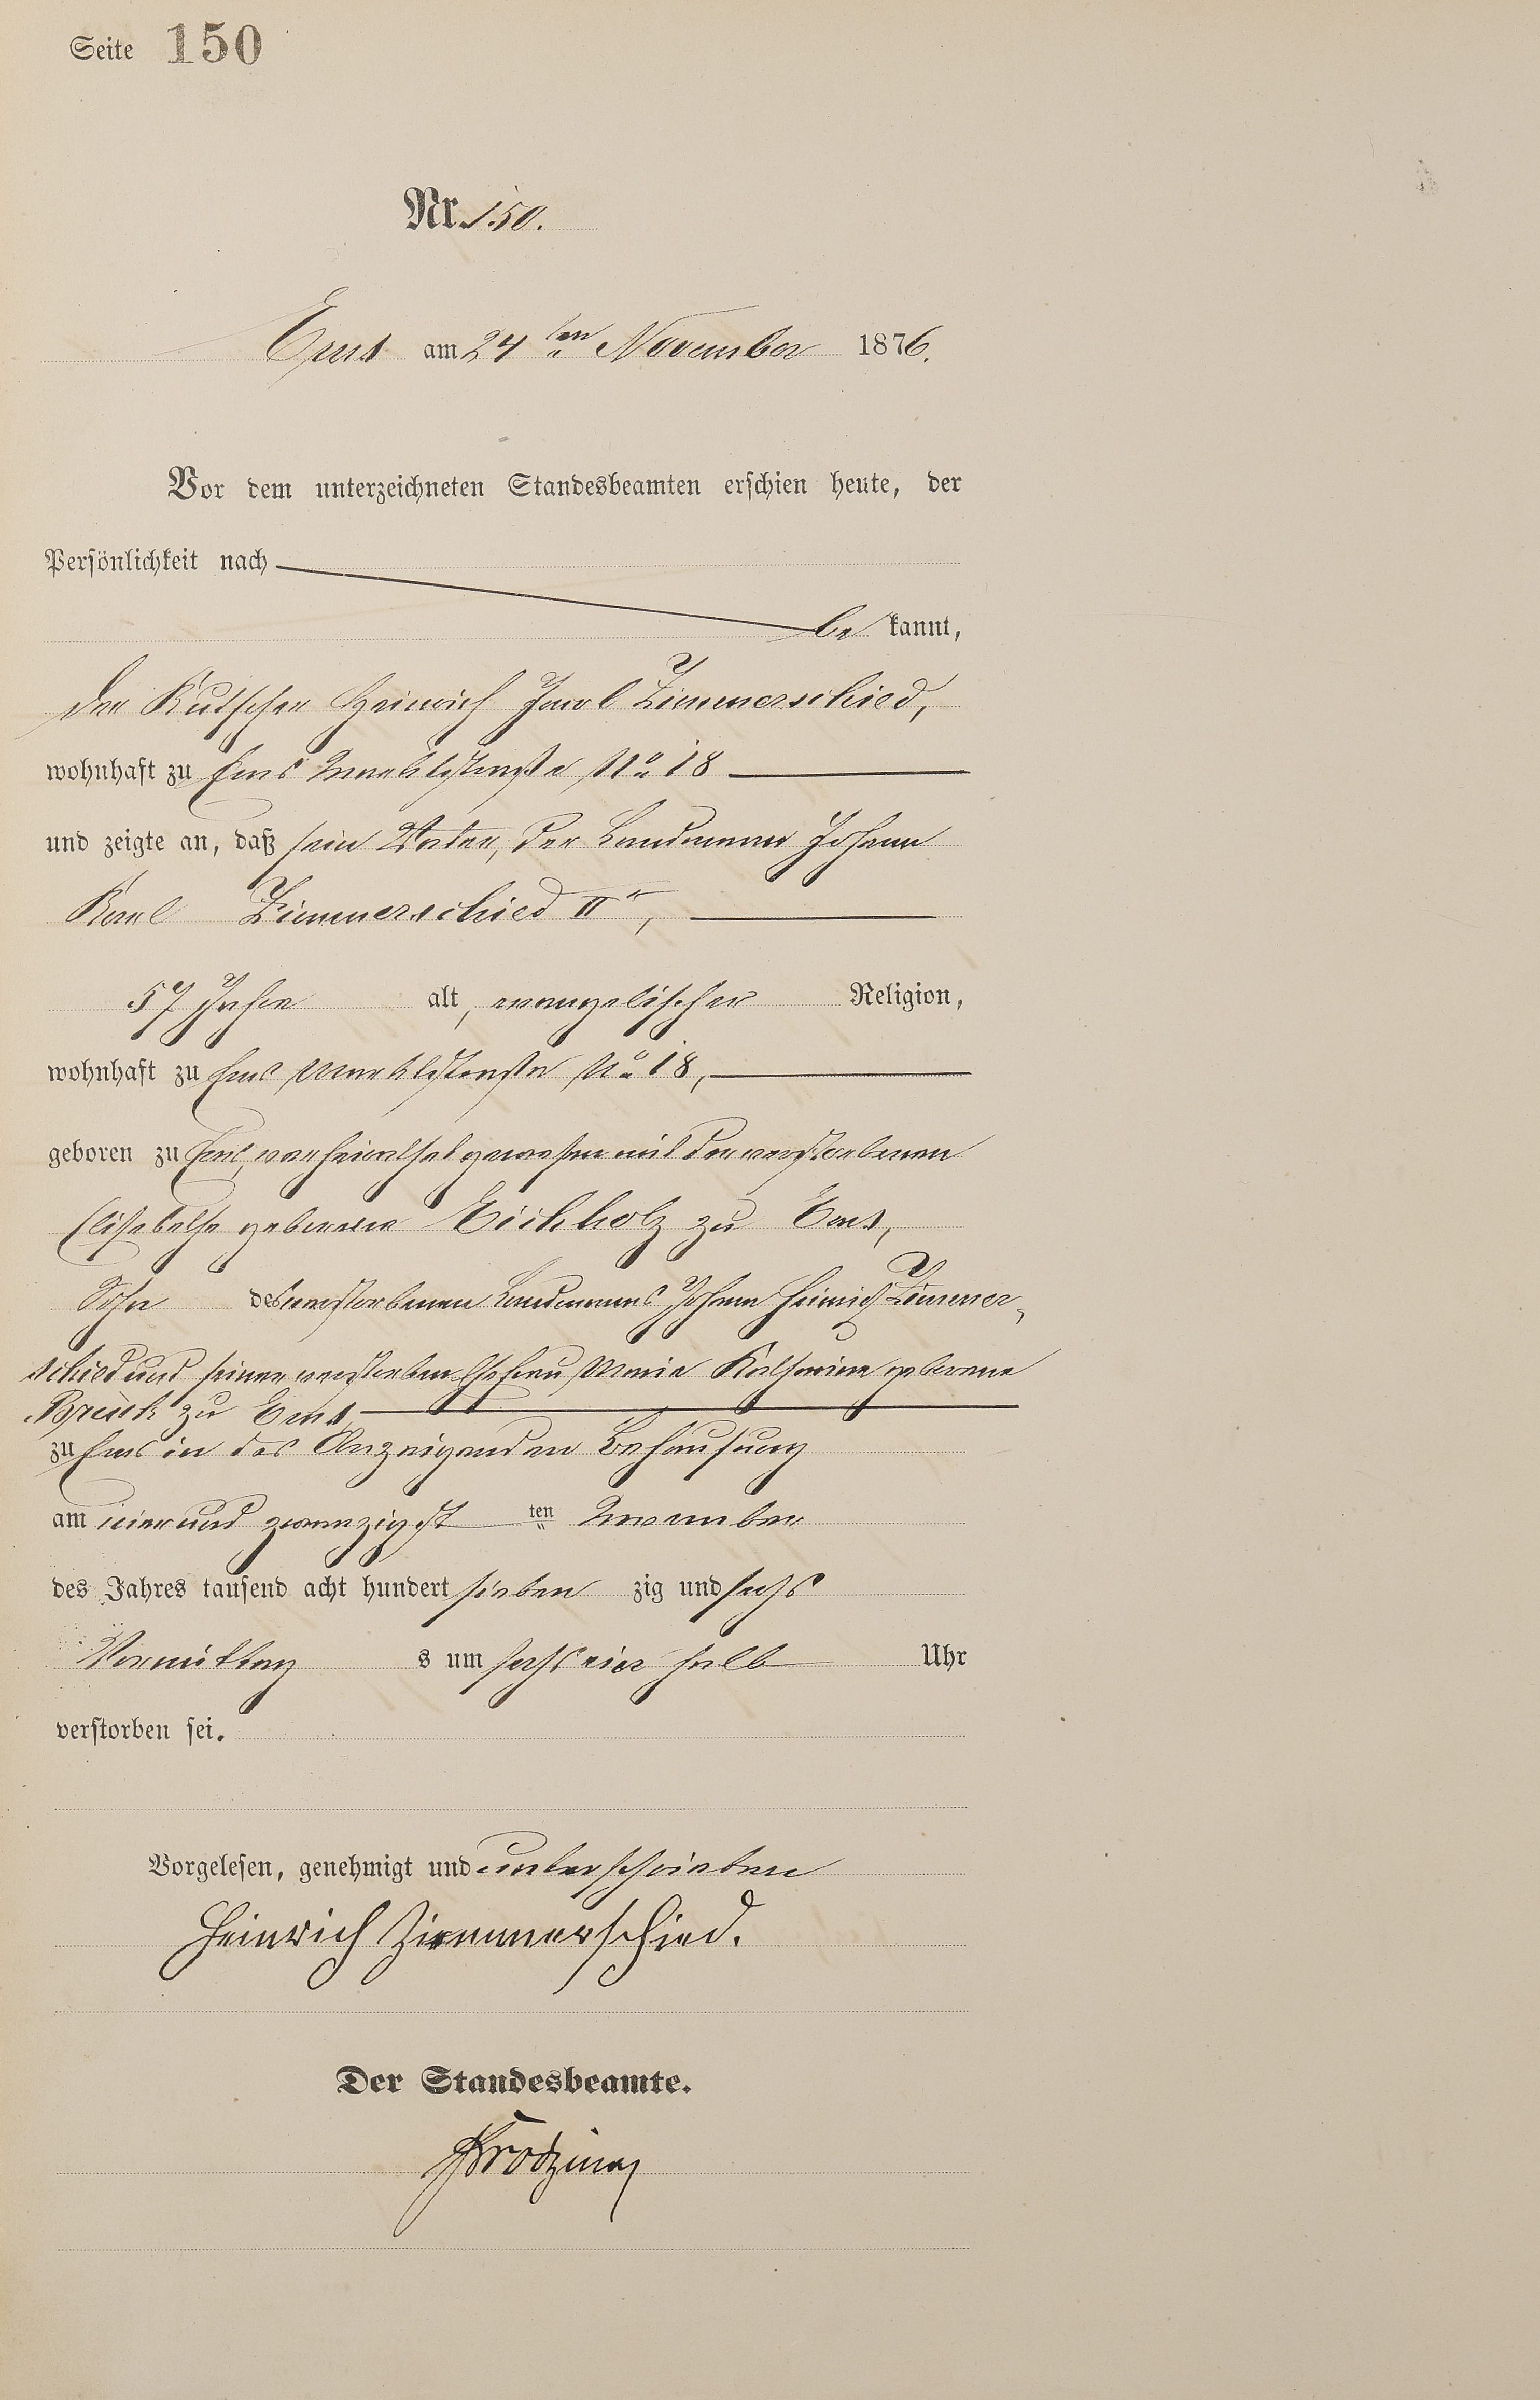 Seite 150
Nr. 150.
Ems am 24ten November 1876.
Vor dem unterzeichneten Standesbeamten erschien heute, der
Persönlichkeit nach
be kannt,
der Kutscher Heinrich Jacob Zimmerschied,
wohnhaft zu Ems Marktstraße No 18
und zeigte an, daß sein Vater, der Landmann Johann
Karl Zimmerschied IIr,
57 Jahre alt, evangelischer Religion,
wohnhaft zu Ems Marktstraße No 18,
geboren zu Ems, verheirathet gewesen mit der verstorbenen
Elisabethe geborene Eichholz zu Ems,
Sohn des verstorbenen Landmanns Johann Heinrich Zimmer-
schied und seiner verstorbenen Ehefrau Maria Katharina geborene
Brück zu Ems
zu Ems in des Anzeigenden Behausung
am vier und zwanzigst ten November
des Jahres tausend acht hundert sieben zig und sechs
Vormittag s um sechs ein halb Uhr
verstorben sei.
Vorgelesen, genehmigt und unterschrieben
Heinrich Zimmerschied.
Der Standesbeamte.